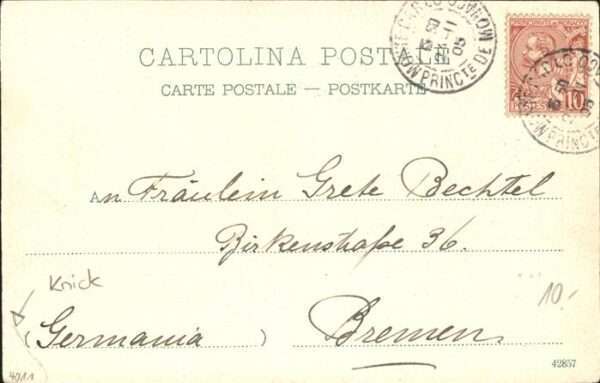 CARTOLINA POSTALE
CARTE POSTALE — POSTKARTE
MONTE CARLO
PRINCTÉ DE MONACO
05
10
An Fräulein Grete Bechtel
Birkenstraße 36.
Knick
10.-
(Germania) Bremen
4911
42857